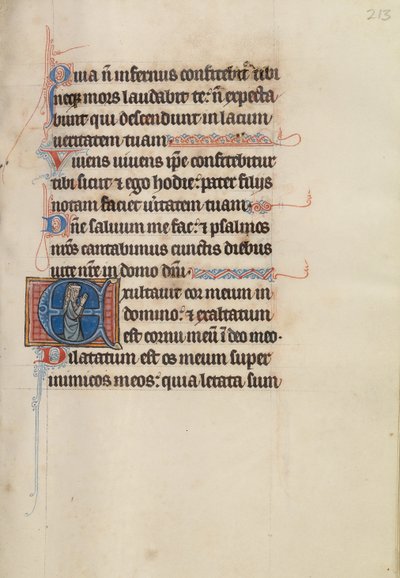 213
Quia n̄ infernus confitebit᷑ tibi
neq; mors laudabit te: n̄ expecta
bunt qui descendunt in lacum
ueritatem tuam.
Viuens uiuens ip̄e confitebitur
tibi sicut & ego hodie: pater filijs
notam faciet ūitatem tuam.
Dn̄e saluum me fac: & psalmos
nr̄os cantabimus cunctis diebus
uite nr̄e in domo dn̄i.
Exultauit cor meum in
domino: & exaltatum
est cornu meū ī deo meo.
Dilatatum est os meum super
inimicos meos: quia letata sum